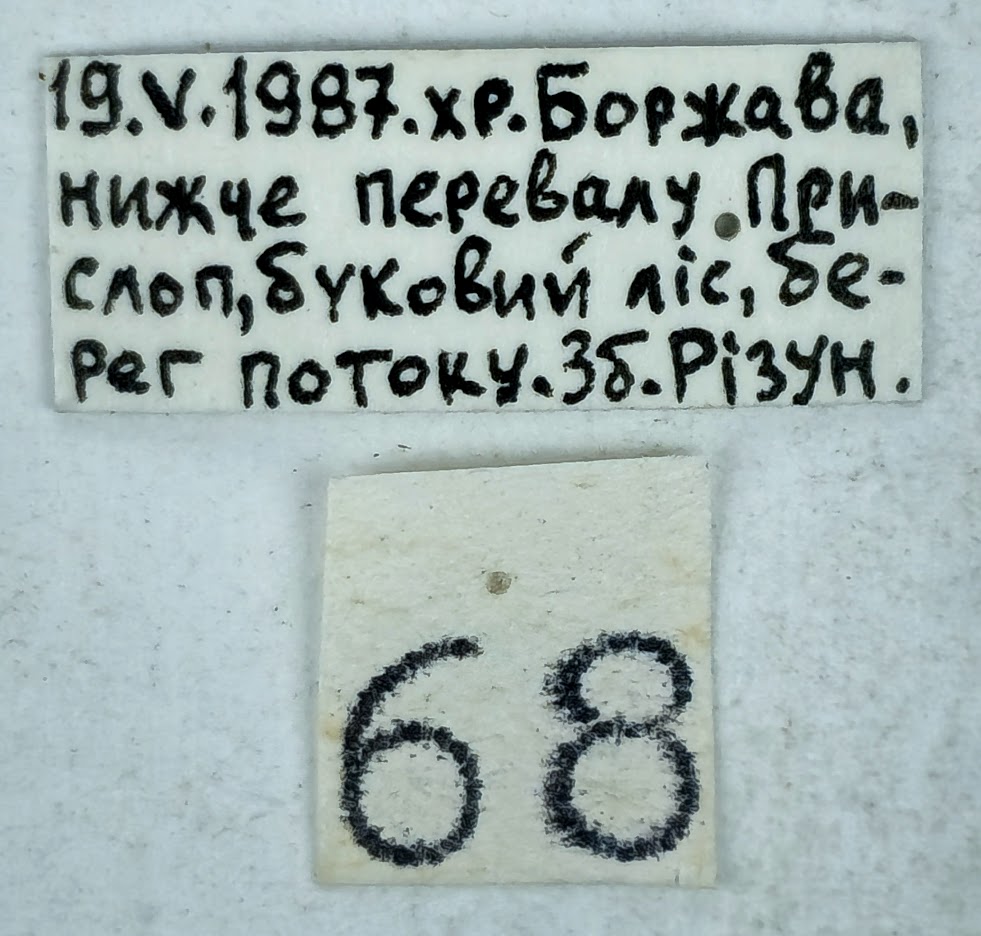 19.V.1987.хр.Боржава,
нижче перевалу При-
слоп,буковий ліс, бе-
рег потоку.Зб.Різун.
68